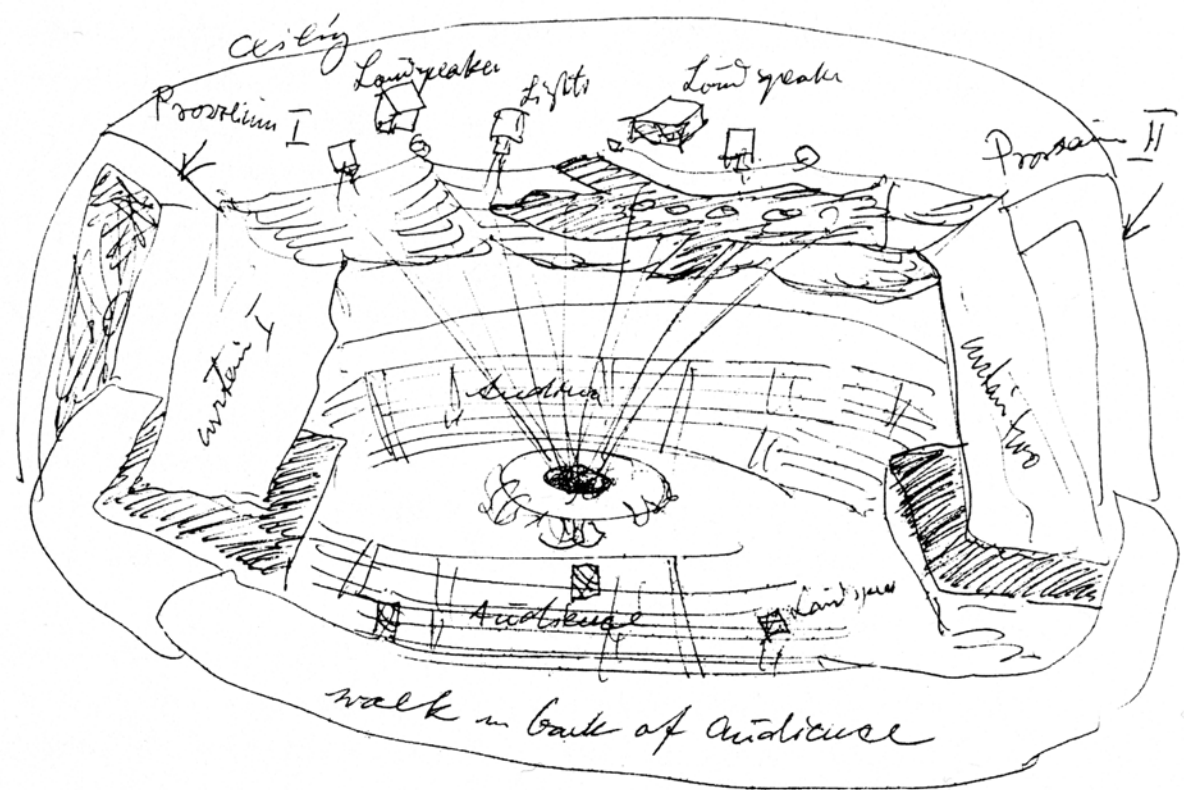 ceiling
Loudspeaker
Lights
Loudspeaker
Proszenium I
Proszenium II
curtain I
Audience
curtain two
Audience
Loudspea
walk in back of audience